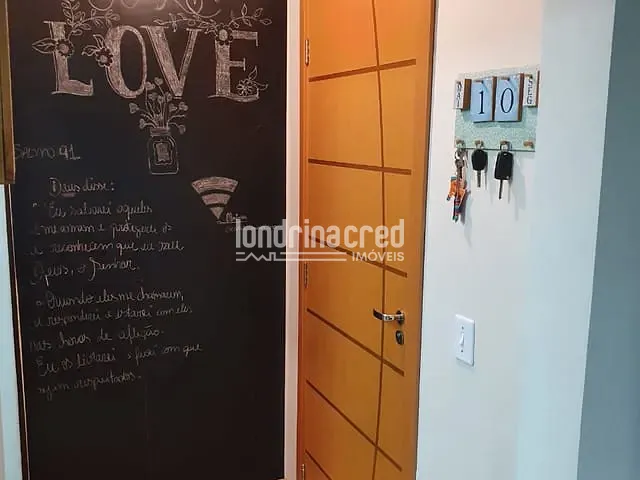 LOVE
SALMO 91
Deus disse:
"Eu salvarei aqueles
que me amam e protegerei os
que reconhecem que eu sou
Deus, o Senhor.
Quando eles me chamarem,
eu responderei e estarei com eles
nas horas de aflição.
Eu os livrarei e farei com que
sejam respeitados.
10
SEG
londrinacred
IMÓVEIS